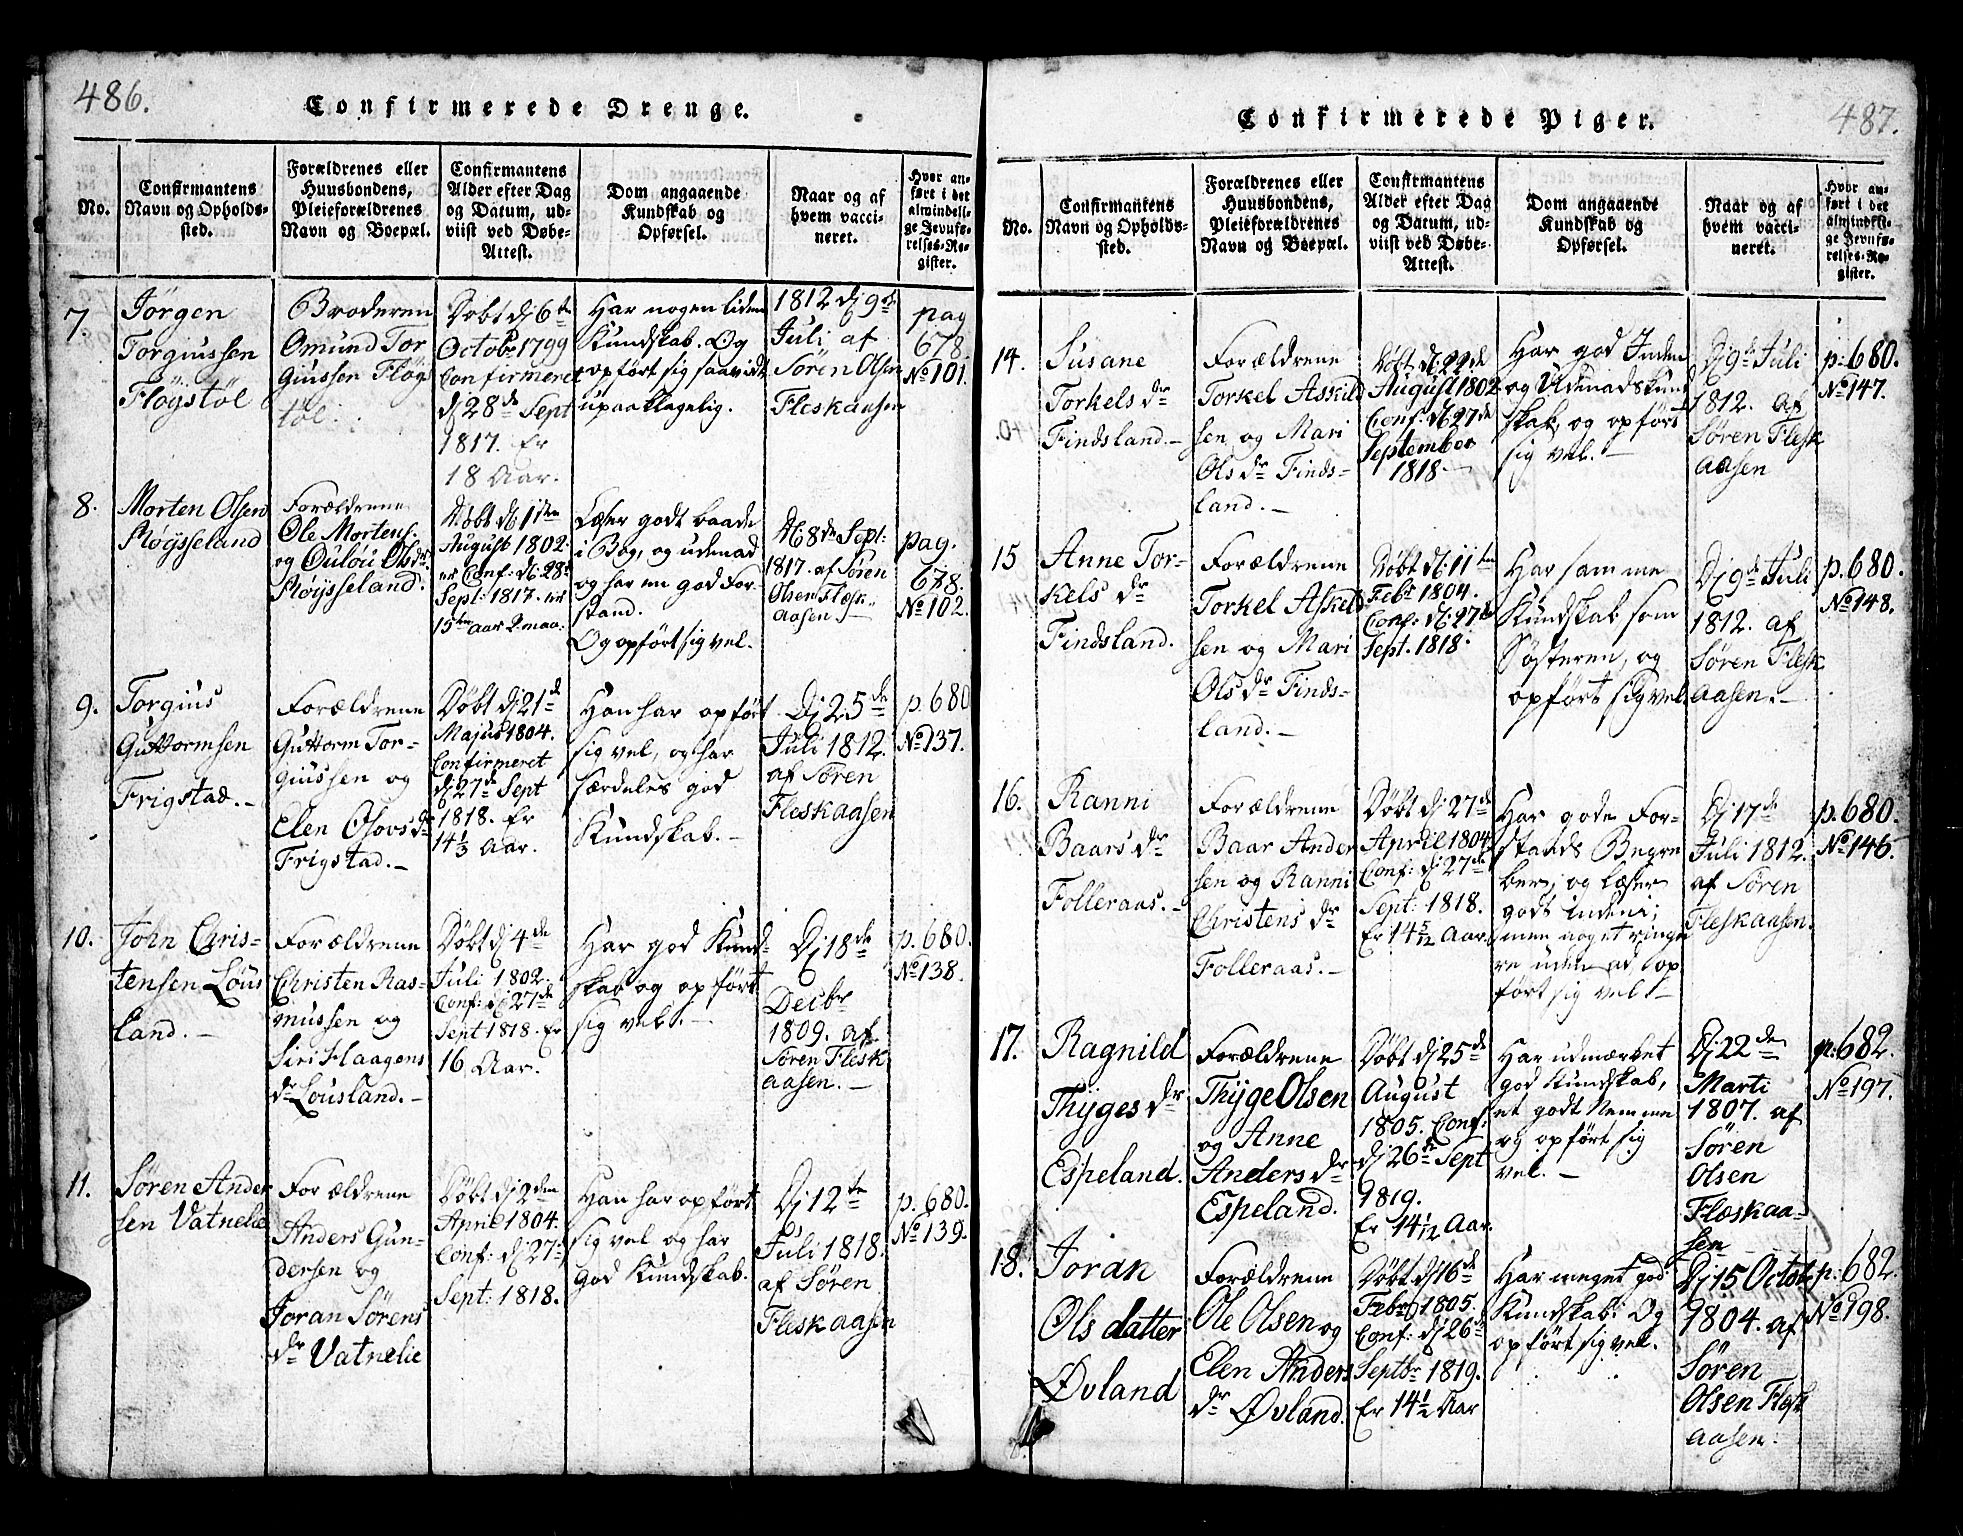 486.
Confirmerede Drenge.
No.
Confirmantens
Navn og Opholds-
sted.
Forældrenes eller
Huusbondens,
Pleieforældrenes
Navn og Boepæl.
Confirmantens
Alder efter Dag
og Datum, ud-
viist ved Døbe-
Attest.
Dom angaaende
Kundskab og
Opførsel.
Naar og af
hvem vacci-
neret.
Hvor an-
ført i det
almindeli-
ge Jevnfø-
relses-Re-
gister.
7.
Jörgen
Torgiussen
Flögstöl
Broderen
Omund Tor
giussen Flögs
töl.
Døbt d. 6te
Octobr 1799
Confirmeret
d. 28de Sept
1817. Er
18 Aar.
Har nogen liden
Kundskab. Og
opført sig saavidt
upaaklagelig.
1812 d. 9de
Juli af
Sören Olsen
Fleskaasen
pag
678.
No 101.
8.
Morten Olsen
Røÿsseland
Forældrene
Ole Mortens:
og Oulöu Olsdr
Røÿsseland.
Døbt d. 1ste
August 1802
er Conf: d. 28de
Sept: 1817. er
15ten Aar 2 maa:
Læser godt baade
i Bog, og udenad
og har en god For-
stand.
Og opført sig vel.
d. 8de Sept:
1817. af Søren
Olsen Flesk-
aasen.
pag.
678.
No 102.
9.
Torgius
Guttormsen
Frigstad.
Forældrene
Guttorm Tor-
giussen og
Elen Osovsdr
Frigstad.
Døbt d. 21de
Majus 1804.
Confirmeret
d. 27de Sept
1818. Er
14 1/3 Aar.
Han har opført
sig vel, og har
særdeles god
Kundskab.
D. 25de
Juli 1812.
af Søren
Fleskaasen
p. 680
No 137.
10.
John Chris-
tensen Löus
land.
Forældrene
Christen Ras-
mussen og
Siri Haagens
dr Lousland.
Døbt d. 4de
Juli 1802.
Conf: d. 27de
Sept 1818. Er
16 Aar.
Har god Kund-
skab og opført
sig vel.
D. 18de
Decbr
1809. af
Søren Flesk
aasen.
p. 680.
No 138.
11.
Søren Ander
sen Vatnelie
Forældrene
Anders Gun-
dersen og
Joran Sørens
dr Vatnelie
Døbt d. 2den
April 1804.
Conf: d. 27de
Sept: 1818.
Han har opført
sig vel og har
god Kundskab.
D. 12te
Juli 1818.
af Søren
Fleskaasen
p. 680.
No 139.
487.
Confirmerede Piger.
No.
Confirmantens
Navn og Opholds-
sted.
Forældrenes eller
Huusbondens,
Pleieforældrenes
Navn og Boepæl.
Confirmantens
Alder efter Dag
og Datum, ud-
viist ved Døbe-
Attest.
Dom angaaende
Kundskab og
Opførsel.
Naar og af
hvem vacci-
neret.
Hvor an-
ført i det
almindeli-
ge Jevnfø-
relses-Re-
gister.
14.
Susane
Torkels dr
Findsland.
Forældrene
Torkel Askild
sen og Mari
Ols dr Finds-
land.
Døbt d. 22de
August 1802
Conf. d. 27de
September
1818
Har god Inden
og Udenads kund
skab, og opført
sig vel.
D. 9de Juli
1812. af
Søren Flesk
aasen
p. 680.
No 147.
15
Anne Tor-
kels dr
Findsland.
Forældrene
Torkel Askild
sen og Mari
Ols dr Finds-
land.
Døbt d. 11ten
Febr 1804.
Conf: d. 27de
Sept. 1818.
Har samme
Kundskab som
Søsteren, og
opført sig vel.
D. 9de Juli
1812. af
Søren Flesk
aasen.
p. 680.
No 148.
16.
Ranni
Baars dr
Folleraas.
Forældrene
Baar Ander
sen og Ranni
Christens dr
Folleraas.
Døbt d. 27de
April 1804
Conf: d. 27de
Sept: 1818.
Er 14 5/12 Aar.
Har gode For-
stands Begre
ber, og læser
godt indeni;
men noget ringe
re uden ad, op
ført sig vel.
D. 17de
Juli 1812.
af Søren
Fleskaasen.
p. 680.
No 146.
17.
Ragnild
Thÿges dr
Espeland.
Forældrene
Thÿge Olsen
og Anne
Anders dr
Espeland.
Døbt d. 25de
August
1805. Conf:
d. 26de Sept
1819.
Er 14 1/12 Aar.
Har udmærket
god Kundskab,
et godt Nemme
og opført sig
vel.
D. 22de
Marti
1807. af
Søren
Olsen
Fleskaa-
sen
p. 682.
No 197.
18.
Joran
Ols datter
Øvland
Forældrene
Ole Olsen og
Elen Anders
dr Øvland.
Døbt d. 16de
Febr 1805.
Conf: d. 26de
Septbr 1819.
Er 14 1/2 Aar
Har meget god
Kundskab. Og
opført sig vel.
D. 15 Octob
1804. af
Søren
Olsen Flesk
aasen.
p. 682.
No 198.